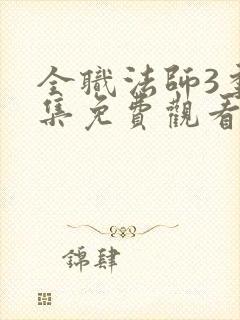 全職法師3季
集免費觀看
錦肆